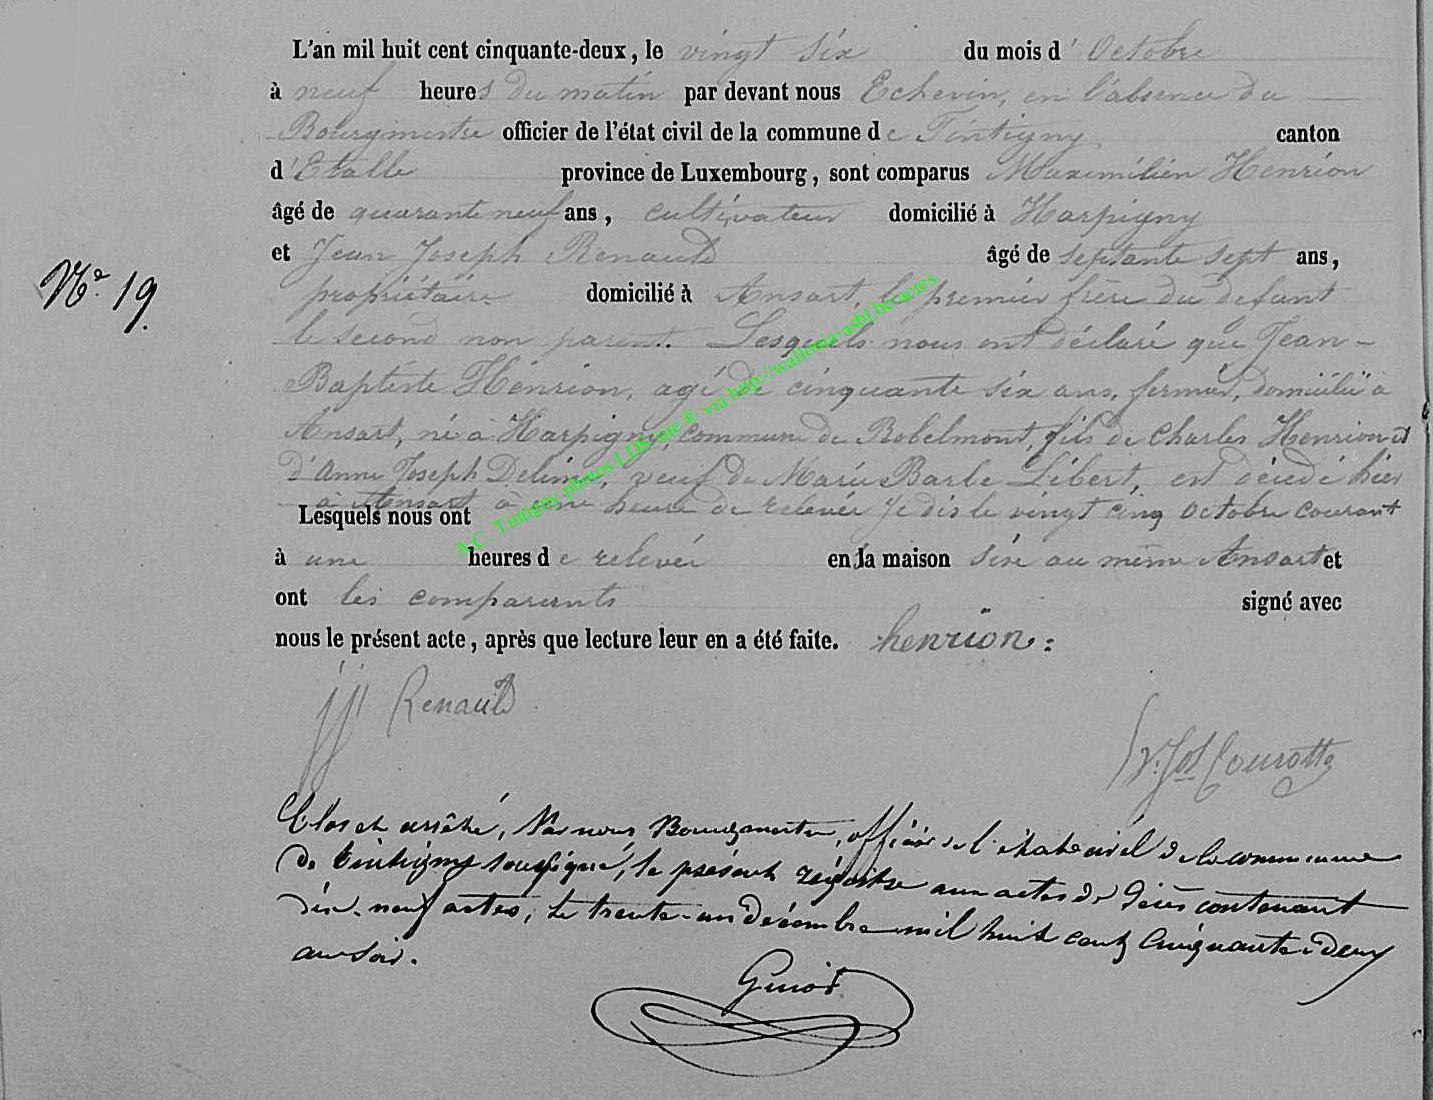 L'an mil huit cent cinquante-deux, le vingt six du mois d' Octobre
à neuf heures du matin par devant nous Echevin, en l'absence du
Bourgmestre officier de l'état civil de la commune de Tintigny, canton
d'Etalle province de Luxembourg, sont comparus Maximilien Henrion
âgé de quarante neuf ans, cultivateur domicilié à Harpigny
et Jean Joseph Renauld âgé de septante sept ans,
N° 19.
propriétaire domicilié à Ansart, le premier frère du défunt
le second non parent. Lesquels nous ont déclaré que Jean-
Baptiste Henrion, agé de cinquante six ans, fermier, domicilié à
Ansart, né à Harpigny, commune de Bobelmont, fils de Charles Henrion et
d'Anne Joseph veuf de Marie Barbe Libert, est décédé hier
à Ansart à une heure de relevée je dis le vingt cinq octobre courant
Lesquels nous ont
à une heures de relevée en la maison sise au même Ansart et
ont les comparants signé avec
nous le présent acte, après que lecture leur en a été faite. henrion:
jj Renauld
Jos Courotte
Clos et arrêté, Par nous Bourgmestre, officier de l'état civil de la commune
de Tintigny soussigné, le présent régistre aux actes de décès contenant
dix-neuf actes, le trente-un décembre mil huit cent cinquante-deux
au soir.
A.C. Tintigny photos LDS site ® via http://wallonia-asbl.be/actes